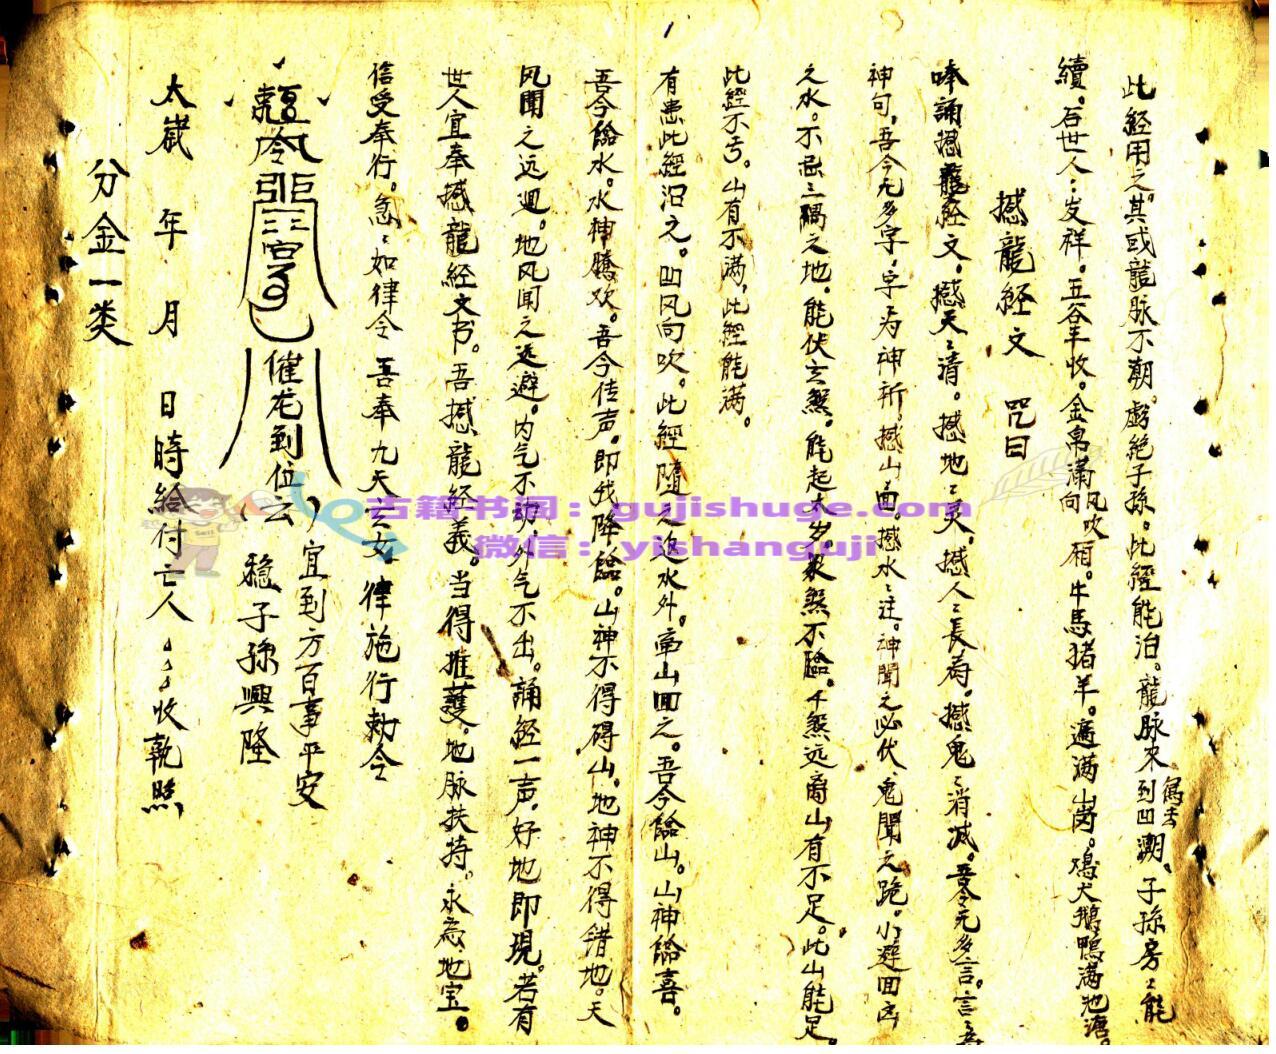 此經用之。其或龍脉不朝。虧絶子孫。此經能治。龍脉來到凹潮。子孫房〻能
續。后世人〻发祥。五谷丰收。金帛满厢。牛馬猪羊。遍满山岗。鸡犬鵝鴨满池塘。
風吹
向
撼龍經文 咒曰
唪誦撼龍經文。撼天〻清。撼地〻灵。撼人〻長寿。撼鬼〻消滅。吾今无多言。言〻
神句。吾今无多字。字〻为神祈。撼山〻面。撼水〻迁。神聞之必伏。鬼聞之跪。小避回凶
之水。不忌三隅之地。能伏玄煞。能起太岁。煞不臨。千煞远离山有不足。此山能足。
此經不亏。山有不满。此經能满。
有患此經治之。凹风向吹。此經隨之返水外。帝山回之。吾今給山。山神給喜。
吾今給水。水神騰欢。吾今传声。即伐降臨。山神不得碍山。地神不得錯地。天
风聞之远迴。地风闻之远避。内气不动。外气不出。誦經一声。好地即現。若有
世人宜奉撼龍經文书。吾撼龍经義。当得推護。地脉扶持。永為地宝。
信受奉行。急〻如律令 吾奉九天玄女 律施行勅令
催龙到位云
宜到方百事平安
稳子孫興隆
太歲 年 月 日時給付亡人〻〻〻收執照
分金一类
古籍书阁：gujishuge.com
微信：yishanguji